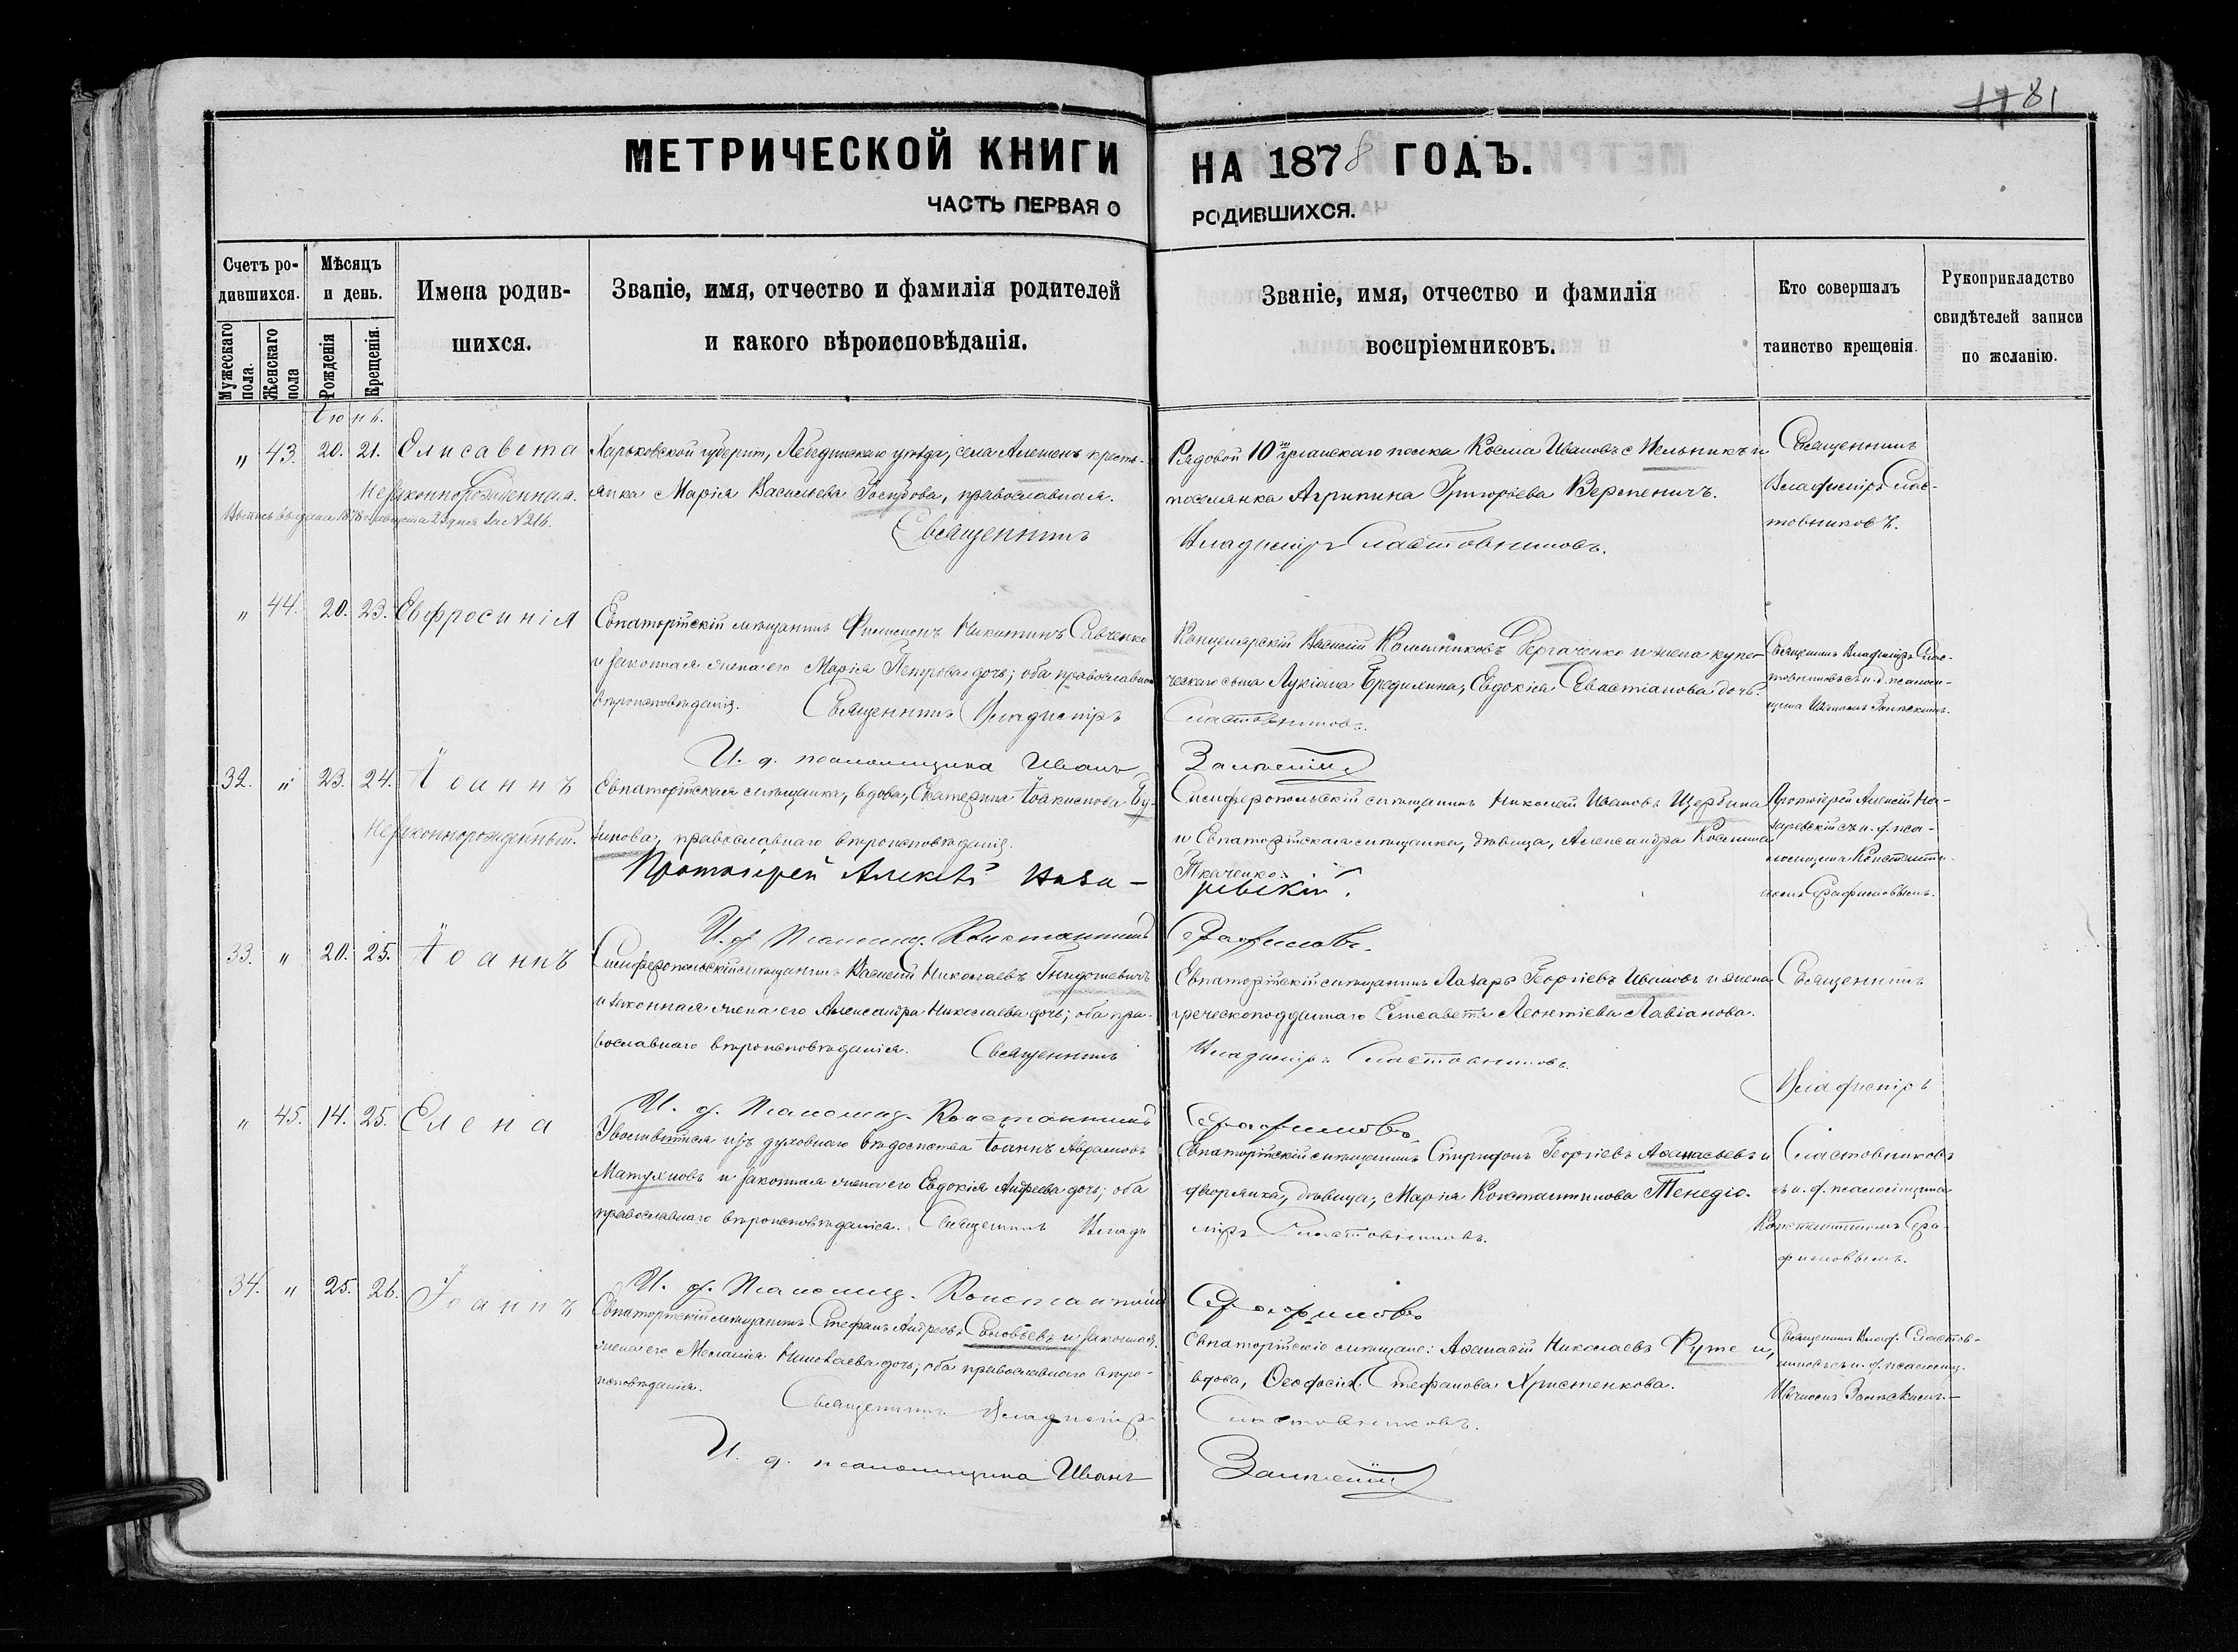 81
МЕТРИЧЕСКОЙ КНИГИ НА 1878 ГОДЪ.
ЧАСТЬ ПЕРВАЯ О РОДИВШИХСЯ.
Счетъ ро-
дившихся.
Мужескаго пола.
Женскаго пола
Мѣсяцъ
и день.
Рожденія
Крещенія.
Имена родив-
шихся.
Званіе, имя, отчество и фамилія родителей
и какого вѣроисповѣданія.
Званіе, имя, отчество и фамилія
воспріемниковъ.
Кто совершалъ
таинство крещенія.
Рукоприкладство
свидѣтелей записи
по желанію.
Іюнь.
" 43. 20. 21. Елисавета
Незаконнорожденная.
Харьковской губерніи, Лебединскаго уѣзда, села Алешенъ кресть-
янка Марія Васильева Госудова, православная.
Священникъ
Рядовой 10го уланскаго полка Косма Ивановъ Мельникъ и
поселянка Агрипина Григорьева Верпеничъ.
Владиміръ Сластовниковъ.
Священникъ
Владиміръ Слас-
товниковъ.
" 44. 20. 23. Евфросинія
Евпаторійскій мѣщанинъ Филимонъ Никитинъ Савченко
и законная жена его Марія Петрова дочь; оба православнаго
вѣроисповѣданія. Священникъ Владиміръ
И. д. псаломщика Иванъ
Канцелярскій Василій Калинниковъ Дергаченко и жена купе-
ческаго сына Лукіана Бредихина, Евдокія Севастіанова дочь.
Сластовниковъ.
Священникъ Владиміръ Слас-
товниковъ съ и. д. псалом-
щика Иваномъ
32. " 23. 24. Іоаннъ
Незаконнорожденный.
Евпаторійская мѣщанка, вдова, Екатерина Іоакимова Бу-
православнаго вѣроисповѣданія.
Протоіерей Алексѣй Наза-
ревскій.
Симферопольскій мѣщанинъ Николай Ивановъ Щербина
и Евпаторійская мѣщанка, дѣвица, Александра Космина
Ткаченко.
Протоіерей Алексій На-
заревскій съ и. д. пса-
ломщика Константи-
номъ Серафимовымъ.
И. д. псаломщ. Константинъ Серафимовъ.
33. " 20. 25. Іоаннъ
Симферопольскій мѣщанинъ Василій Николаевъ Гнидошевичъ
и законная жена его Александра Николаева дочь; оба пра-
вославнаго вѣроисповѣданія. Священникъ
Евпаторійскій мѣщанинъ Лазарь Георгіевъ Ивановъ и жена
греческоподданнаго Елисавета Леонтіева Лавіанова.
Владиміръ Сластовниковъ.
Священникъ
Владиміръ
И. д. псаломщ. Константинъ Серафимовъ
" 45. 14. 25. Елена
изъ духовнаго вѣдомства Іоаннъ Аврамовъ
Матухновъ и законная жена его Евдокія Андреева дочь; оба
православнаго вѣроисповѣданія. Священникъ Влади-
Евпаторійскій мѣщанинъ Спиридонъ Георгіевъ Аѳанасьевъ и
дворянка, дѣвица, Марія Константинова Тенедіо.
міръ Сластовниковъ.
Сластовниковъ
съ и. д. псаломщика
Константиномъ Сера-
фимовымъ.
И. д. псаломщ. Константинъ Серафимовъ
34. " 25. 26. Іоаннъ
Евпаторійскій мѣщанинъ Стефанъ Андреевъ Соловьевъ и законная
жена его Меланія Николаева дочь; оба православнаго вѣро-
исповѣданія.
Священникъ Владиміръ
И. д. псаломщика Иванъ
Евпаторійскіе мѣщане: Аѳанасій Николаевъ Руте и,
вдова, Ѳеодосія Стефанова Христенкова.
Сластовниковъ.
Священникъ Влад. Сластов-
никовъ съ и. д. псаломщ.
Иваномъ